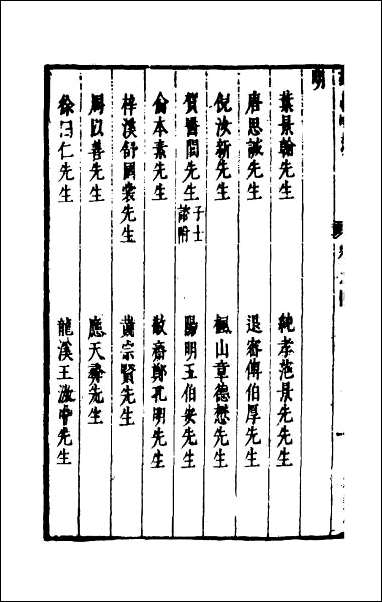 明
葉景翰先生
純孝范景先先生
唐思誠先生
退齋傅伯厚先生
倪汝新先生
楓山章德懋先生
賀醫閭先生子士諮附
陽明王伯安先生
俞本素先生
敬齋鄭孔明先生
梓溪舒國裳先生
黃宗賢先生
周以善先生
應天彝先生
徐曰仁先生
龍溪王汝中先生